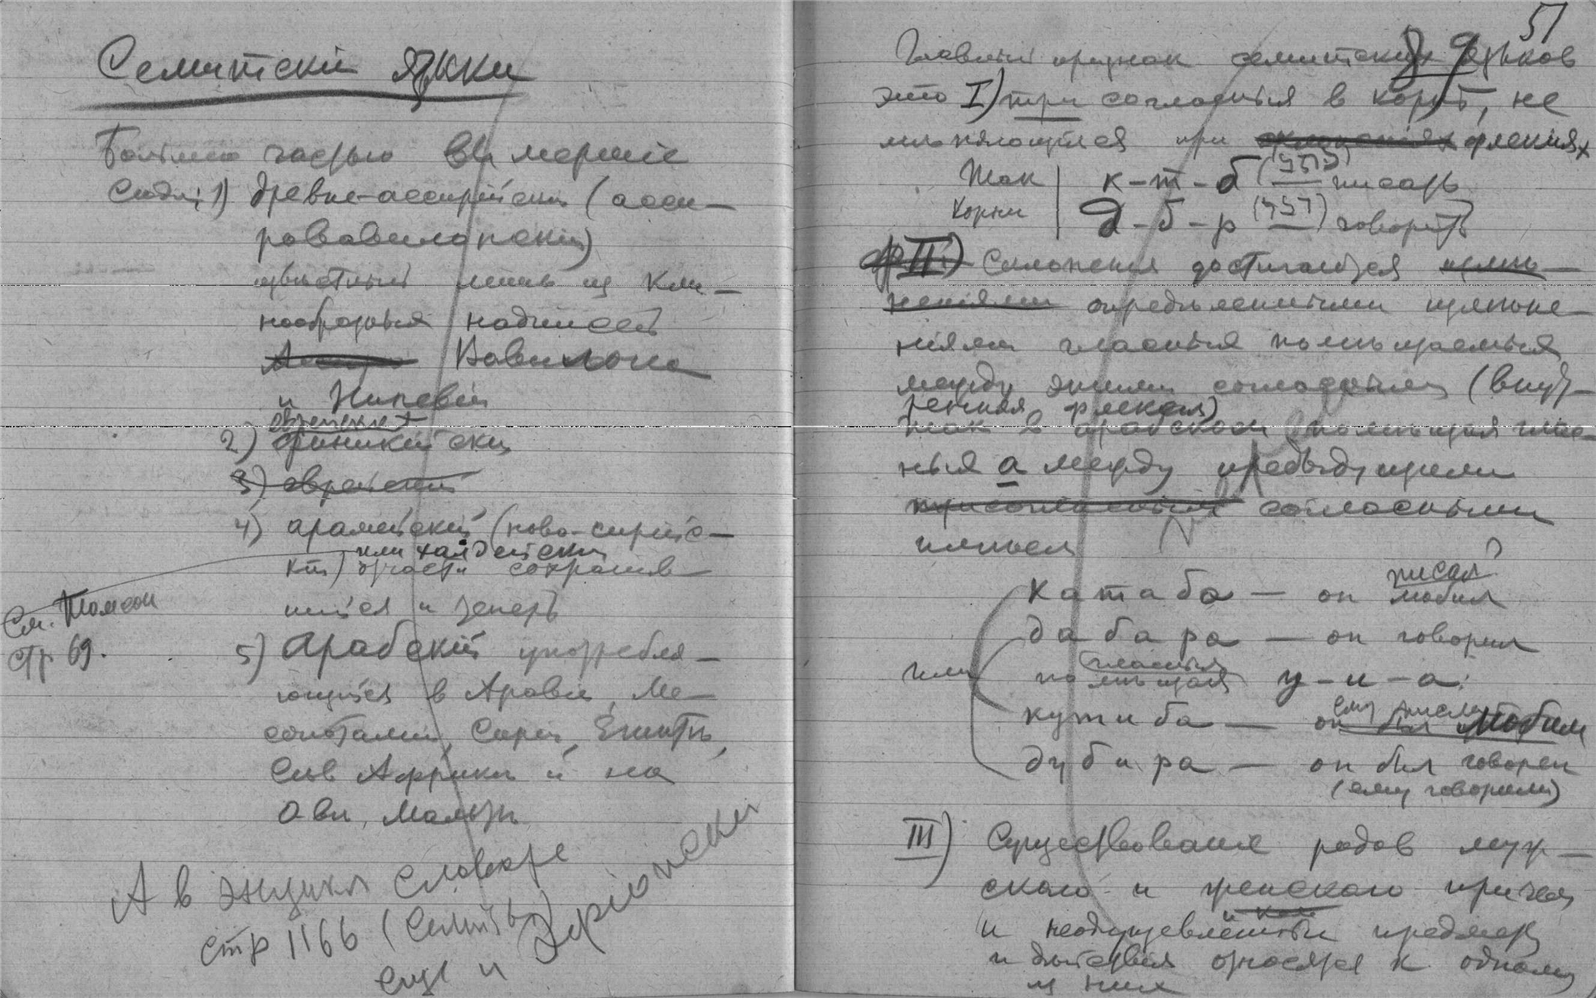 Семитскiе языки
Большею частью вымершiе
Сюда: 1) древне-ассирiйскiй (асси-
ровавилонскiй)
извѣстный лишь из кли-
нообразных надписей
Вавилона
и Ниневiи
еврейскiй +
2) финикiйскiй
3) еврейскiй
4) арамейскiй (ново-сирiйс-
или халдейскiй
кiй) отчасти сохранив-
шiйся и теперь
См. Томсон
стр 69.
5) Арабскiй употребля-
ющiйся в Аравiи, Ме-
сопотамiи, Сирiи, Египтѣ,
Сѣв Африкѣ и на
О-вѣ Мальтѣ
А в энцикл словаре
стр 1166 (Семиты)
еще и Эфiопскiй
51
Главный признак семитских языков
это I) три согласныя в корнѣ, не
измѣняющiеся при флексiях
Так | к-т-б (כתב) писать
корни | д-б-р (דבר) говорить
II) Склоненiя достигаются
опредѣленными измѣне-
нiями гласных помѣщаемых
между этими согласными (внут-
ренняя флексiя)
так в арабском помѣщая глас-
ныя а между предыдущими
согласными
имѣем
писал?
Катаба — он любил
дабара — он говорил
или
гласныя
помѣщая у-и-а:
ему писали
кутиба — он был любим
дубира — он был говорен
(ему говорили)
III) Существованiе родов муж-
ского и женского причем
и неодушевленные предметы
и дѣйствiя относятся к одному
из них